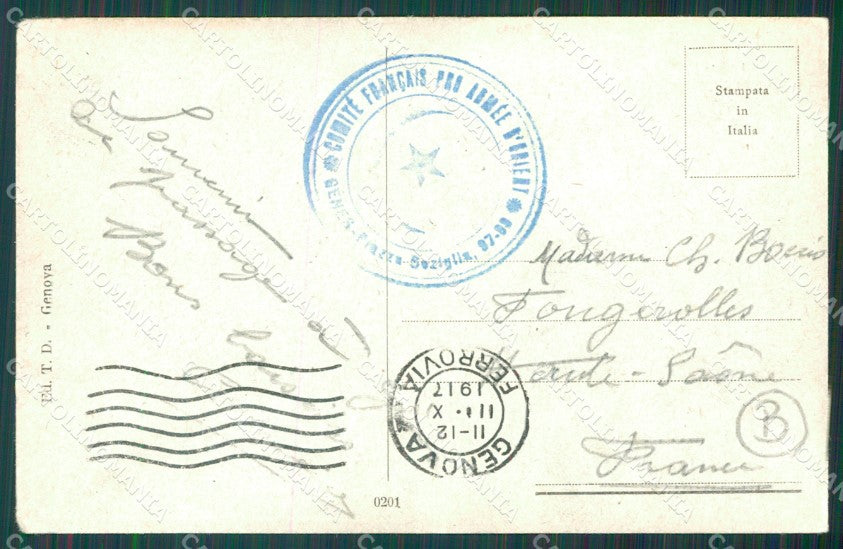 Souvenir
de passage à
Bons baisers
COMITÉ FRANÇAIS PRO ARMÉE D'ORIENT
GENES - Piazza Soziglia, 97-99
Stampata
in
Italia
Madame Ch.
Fougerolles
Haute-Saône
France
B
GENOVA
FERROVIA
11-12
11 X
1917
Ed. T. D. - Genova
0201
CARTOLINOMANIA